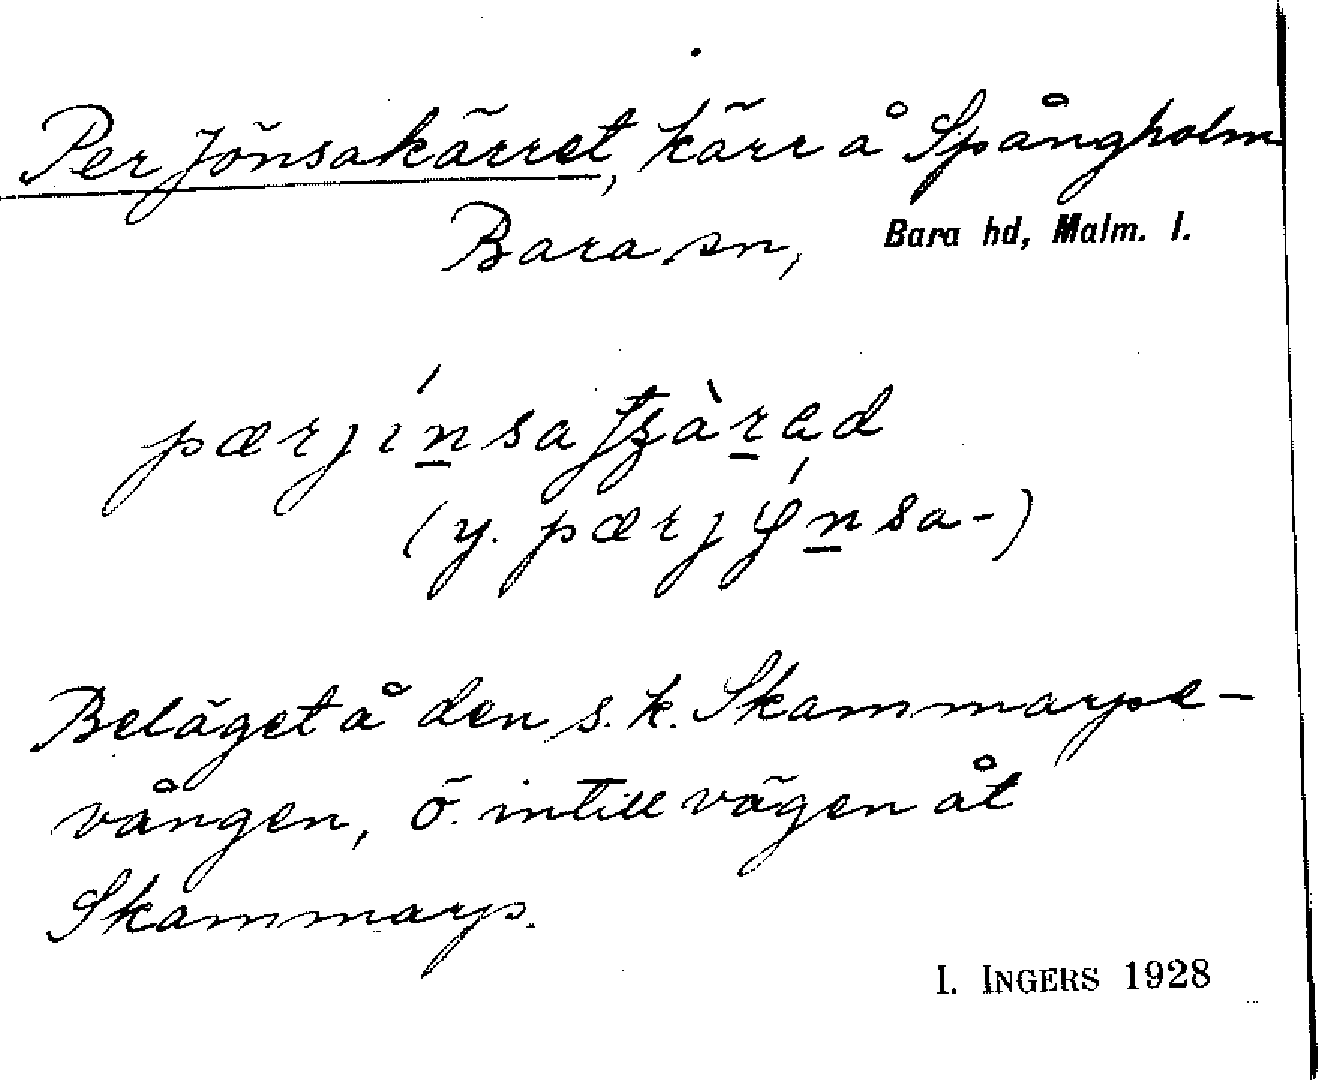 Per Jönsakärret, kärr å Spångholm
Bara sn, Bara hd, Malm. l.
pærjínsa
(y. pærjýnsa-)
Beläget å den s.k. Skammarps-
vången, ö. intill vägen åt
Skammarp.
I. INGERS 1928